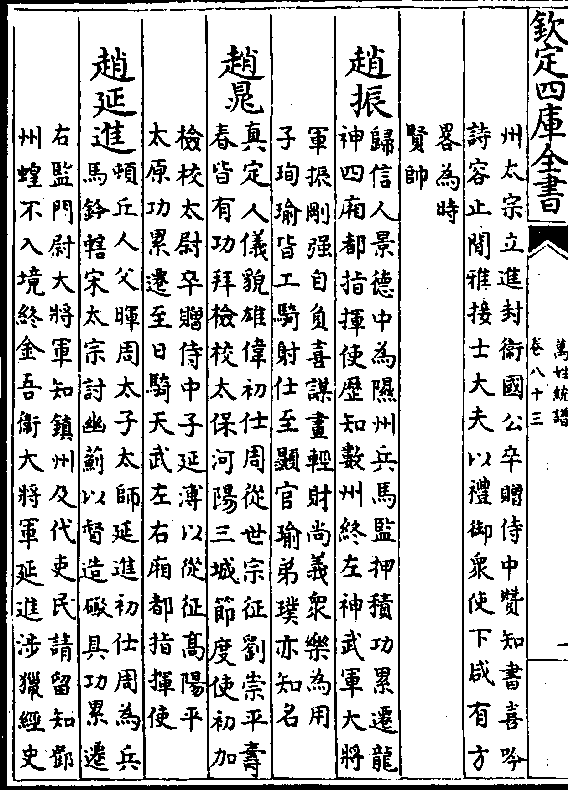 欽定四庫全書
萬姓統譜
卷八十三
州太宗立進封衛國公卒贈侍中贊知書喜吟
詩容止閒雅接士大夫以禮御衆使下咸有方
畧為時
賢帥
趙振
歸信人景德中為隰州兵馬監押積功累遷龍
神四廂都指揮使歷知數州終左神武軍大將
軍振剛强自負喜謀畫輕財尚義衆樂為用
子珣瑜皆工騎射仕至顯官瑜弟璞亦知名
趙晁
真定人儀貌雄偉初仕周從世宗征劉崇平壽
春皆有功拜檢校太保河陽三城節度使初加
檢校太尉卒贈侍中子延溥以從征髙陽平
太原功累遷至日騎天武左右廂都指揮使
趙延進
頓丘人父暉周太子太師延進初仕周為兵
馬鈐轄宋太宗討幽薊以督造礮具功累遷
右監門尉大將軍知鎮州及代吏民請留知鄧
州蝗不入境終金吾衛大將軍延進涉獵經史